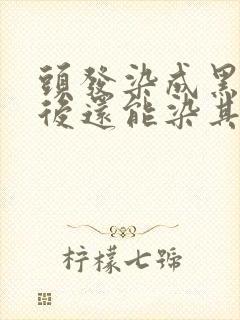 頭發染成黑
後還能染其
柠檬七號